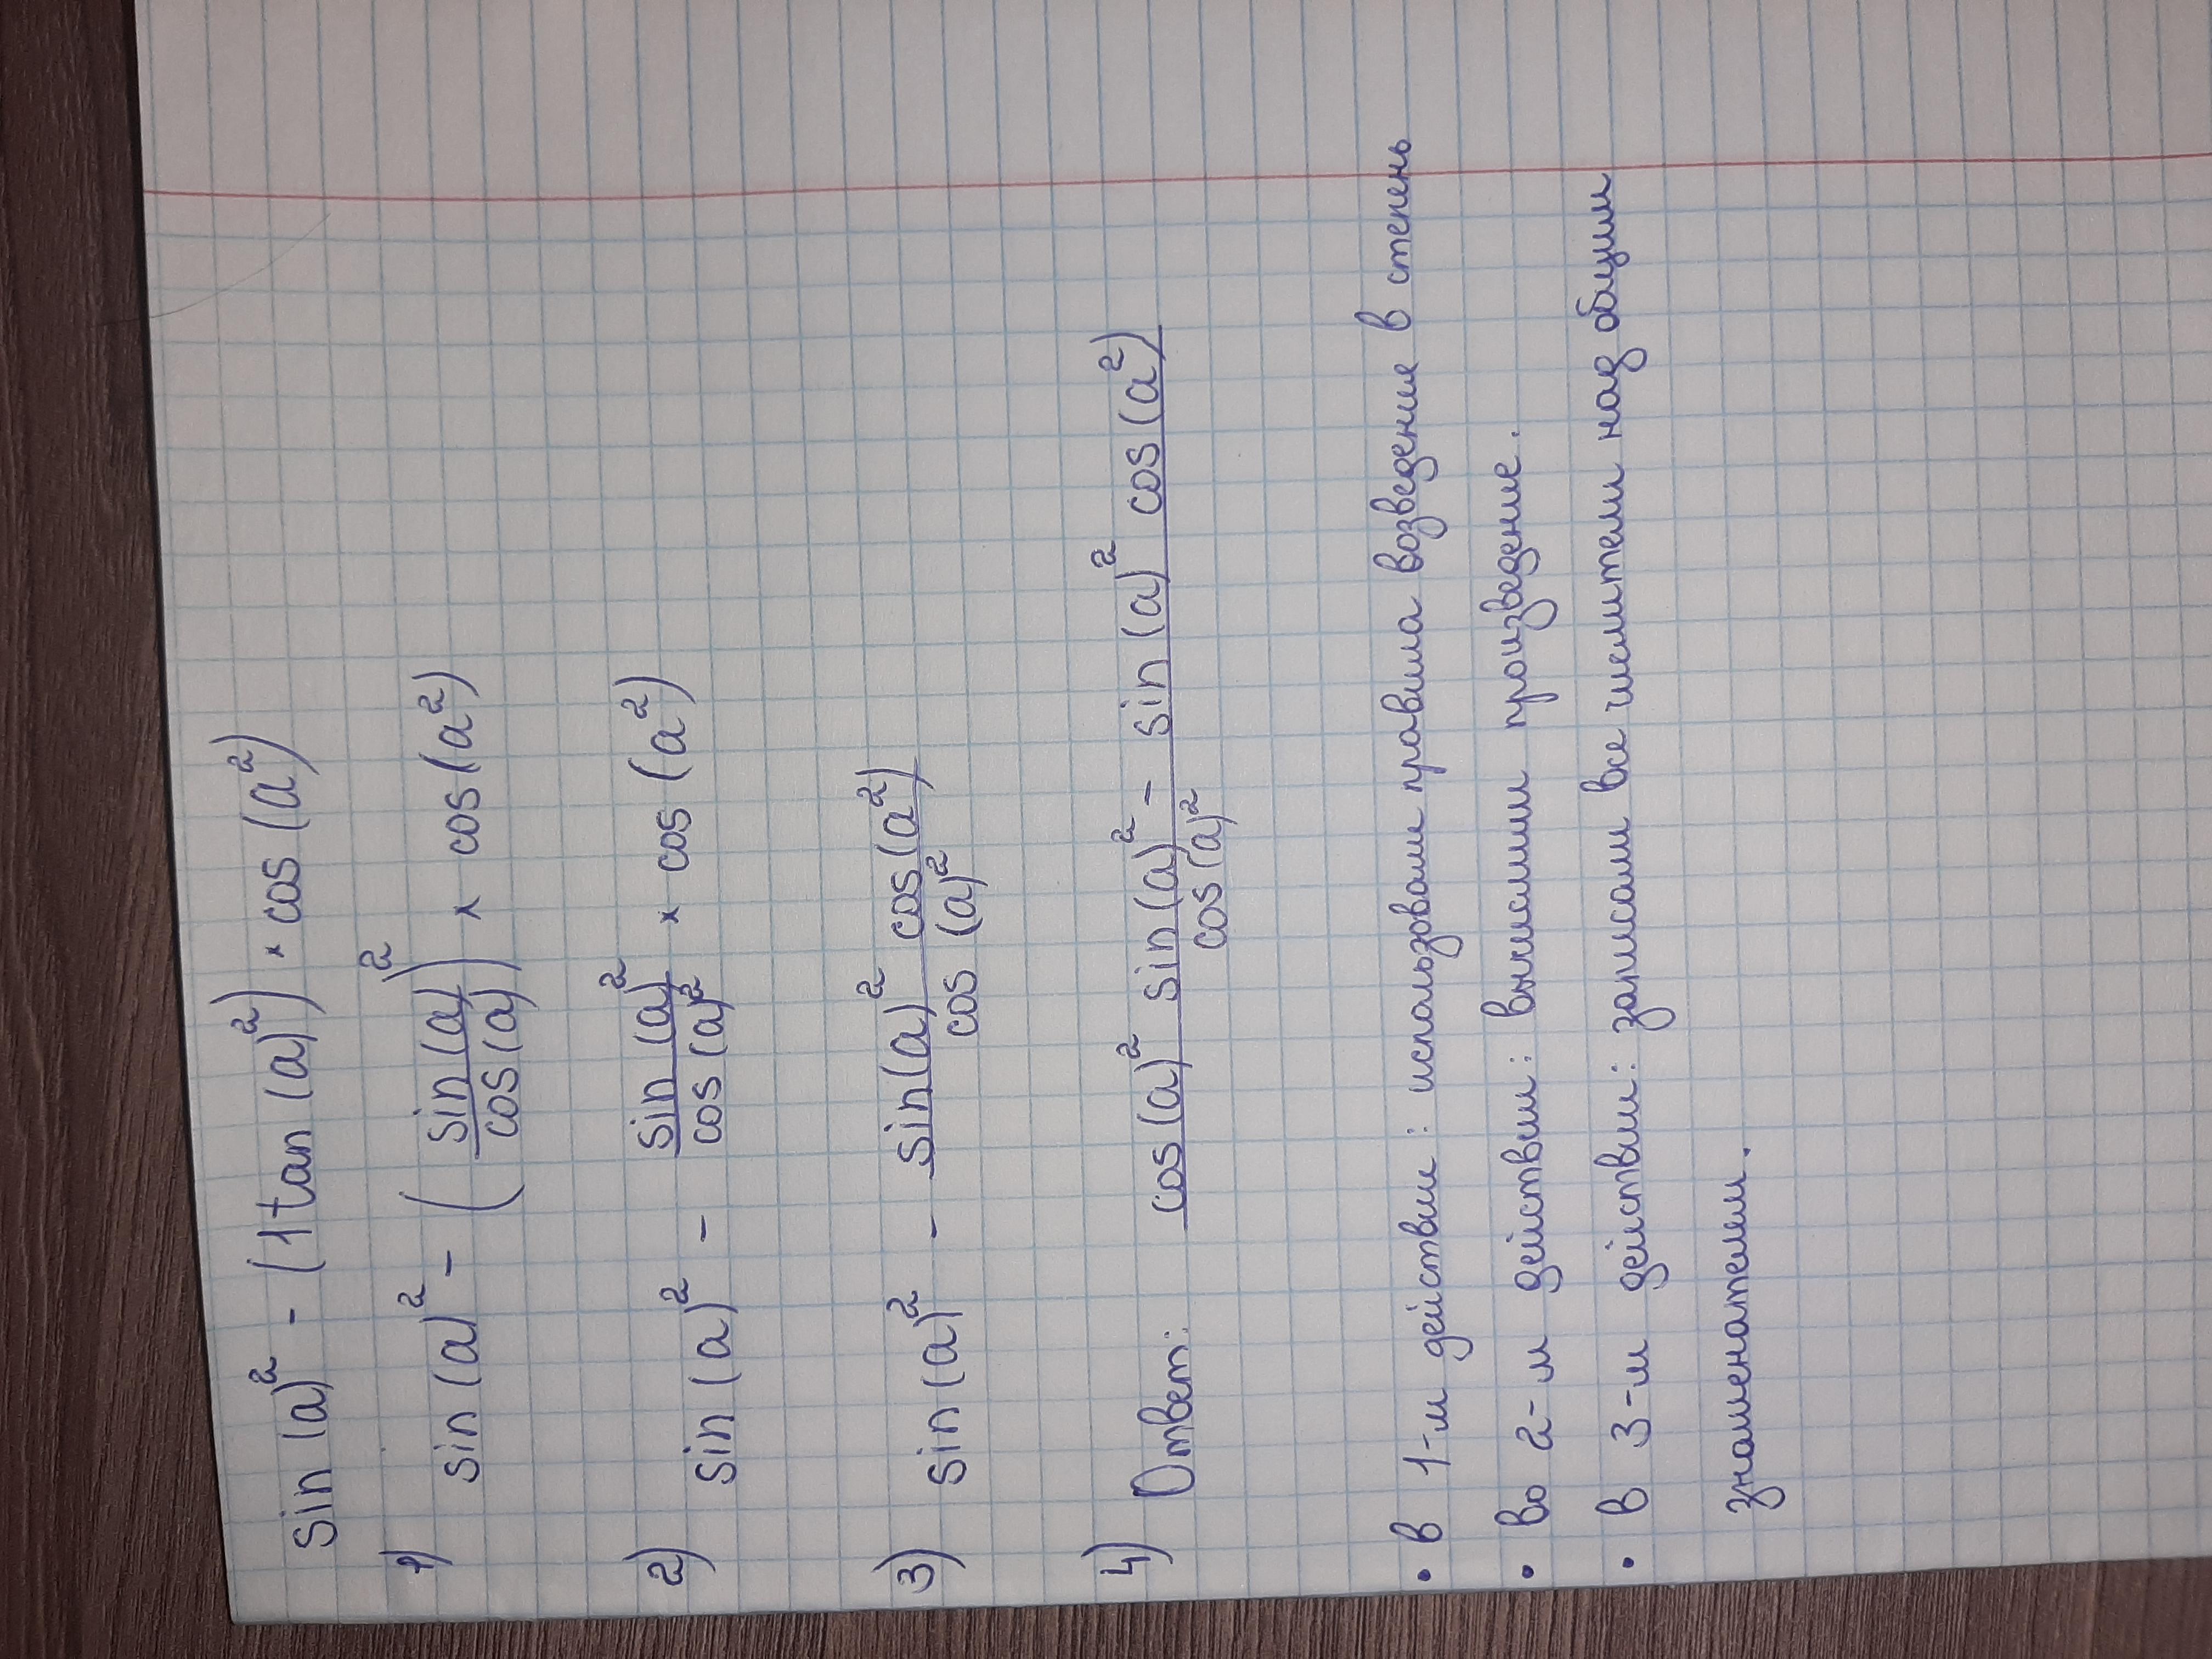 sin (a)² - (1 tan (a)²) × cos (a²)
1) sin (a)² - (sin (a) / cos (a))² × cos (a²)
2) sin (a)² - sin (a)² / cos (a)² × cos (a²)
3) sin (a)² - sin (a)² cos (a²) / cos (a)²
4) Ответ: cos (a)² sin (a)² - sin (a)² cos (a²) / cos (a)²
• в 1-м действии: использовали правила возведение в степень
• во 2-м действии: вычислили произведение.
• в 3-м действии: записали все числители над общим
знаменателем.